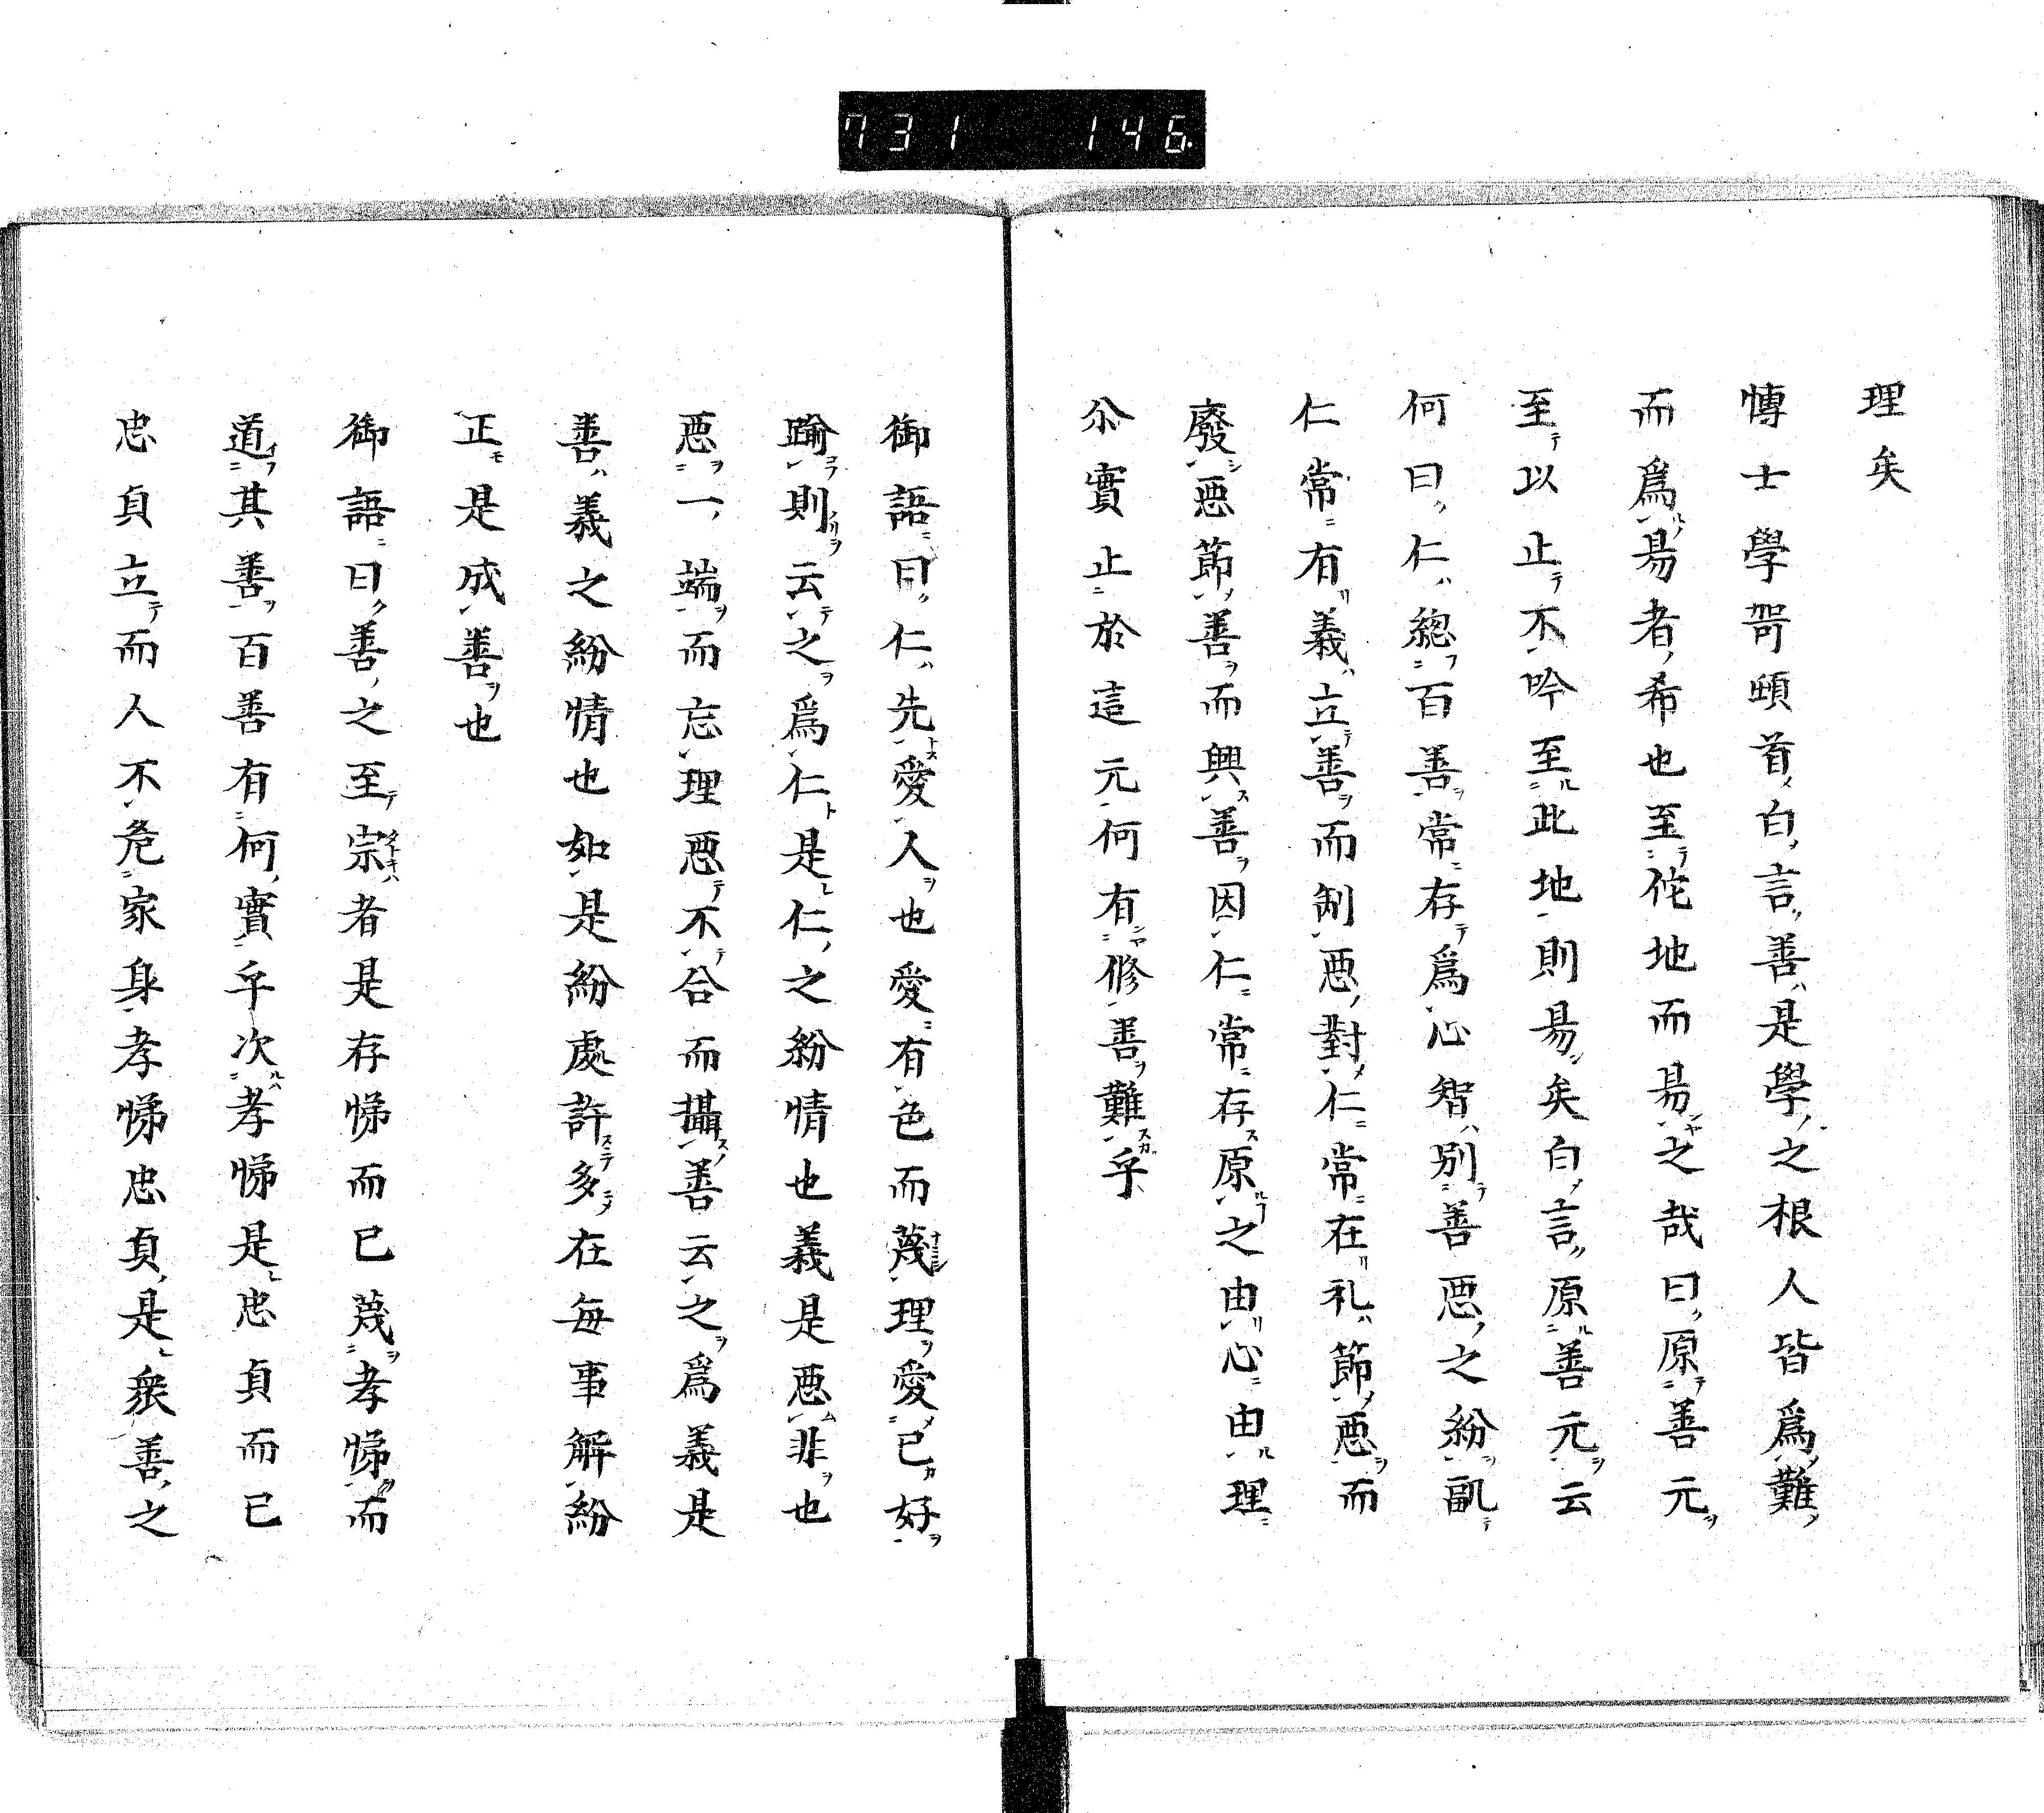 731 146
理矣
愽士學哿頓首白言善是學之根人皆爲難
而爲易者希也至佗地而易之哉曰原善元
至以止不吟至此地則易矣白言原善元云
何曰仁總百善常存爲心智別善惡之紛亂
仁常有義立善而制惡對仁常在礼節惡而
廢惡節善而興善因仁常存原之由心由理
尒實止於這元何有修善難乎
御語曰仁先愛人也愛有色而蔑理愛已好
踰則云之爲仁是仁之紛情也義是惡非也
惡一端而忘理惡不合而攝善云之爲義是
善義之紛情也如是紛處許多在每事解紛
正是成善也
御語曰善之至宗者是存悌而已蔑孝悌而
道其善百善有何實乎次孝悌是忠貞而已
忠貞立而人不危家身孝悌忠貞是衆善之